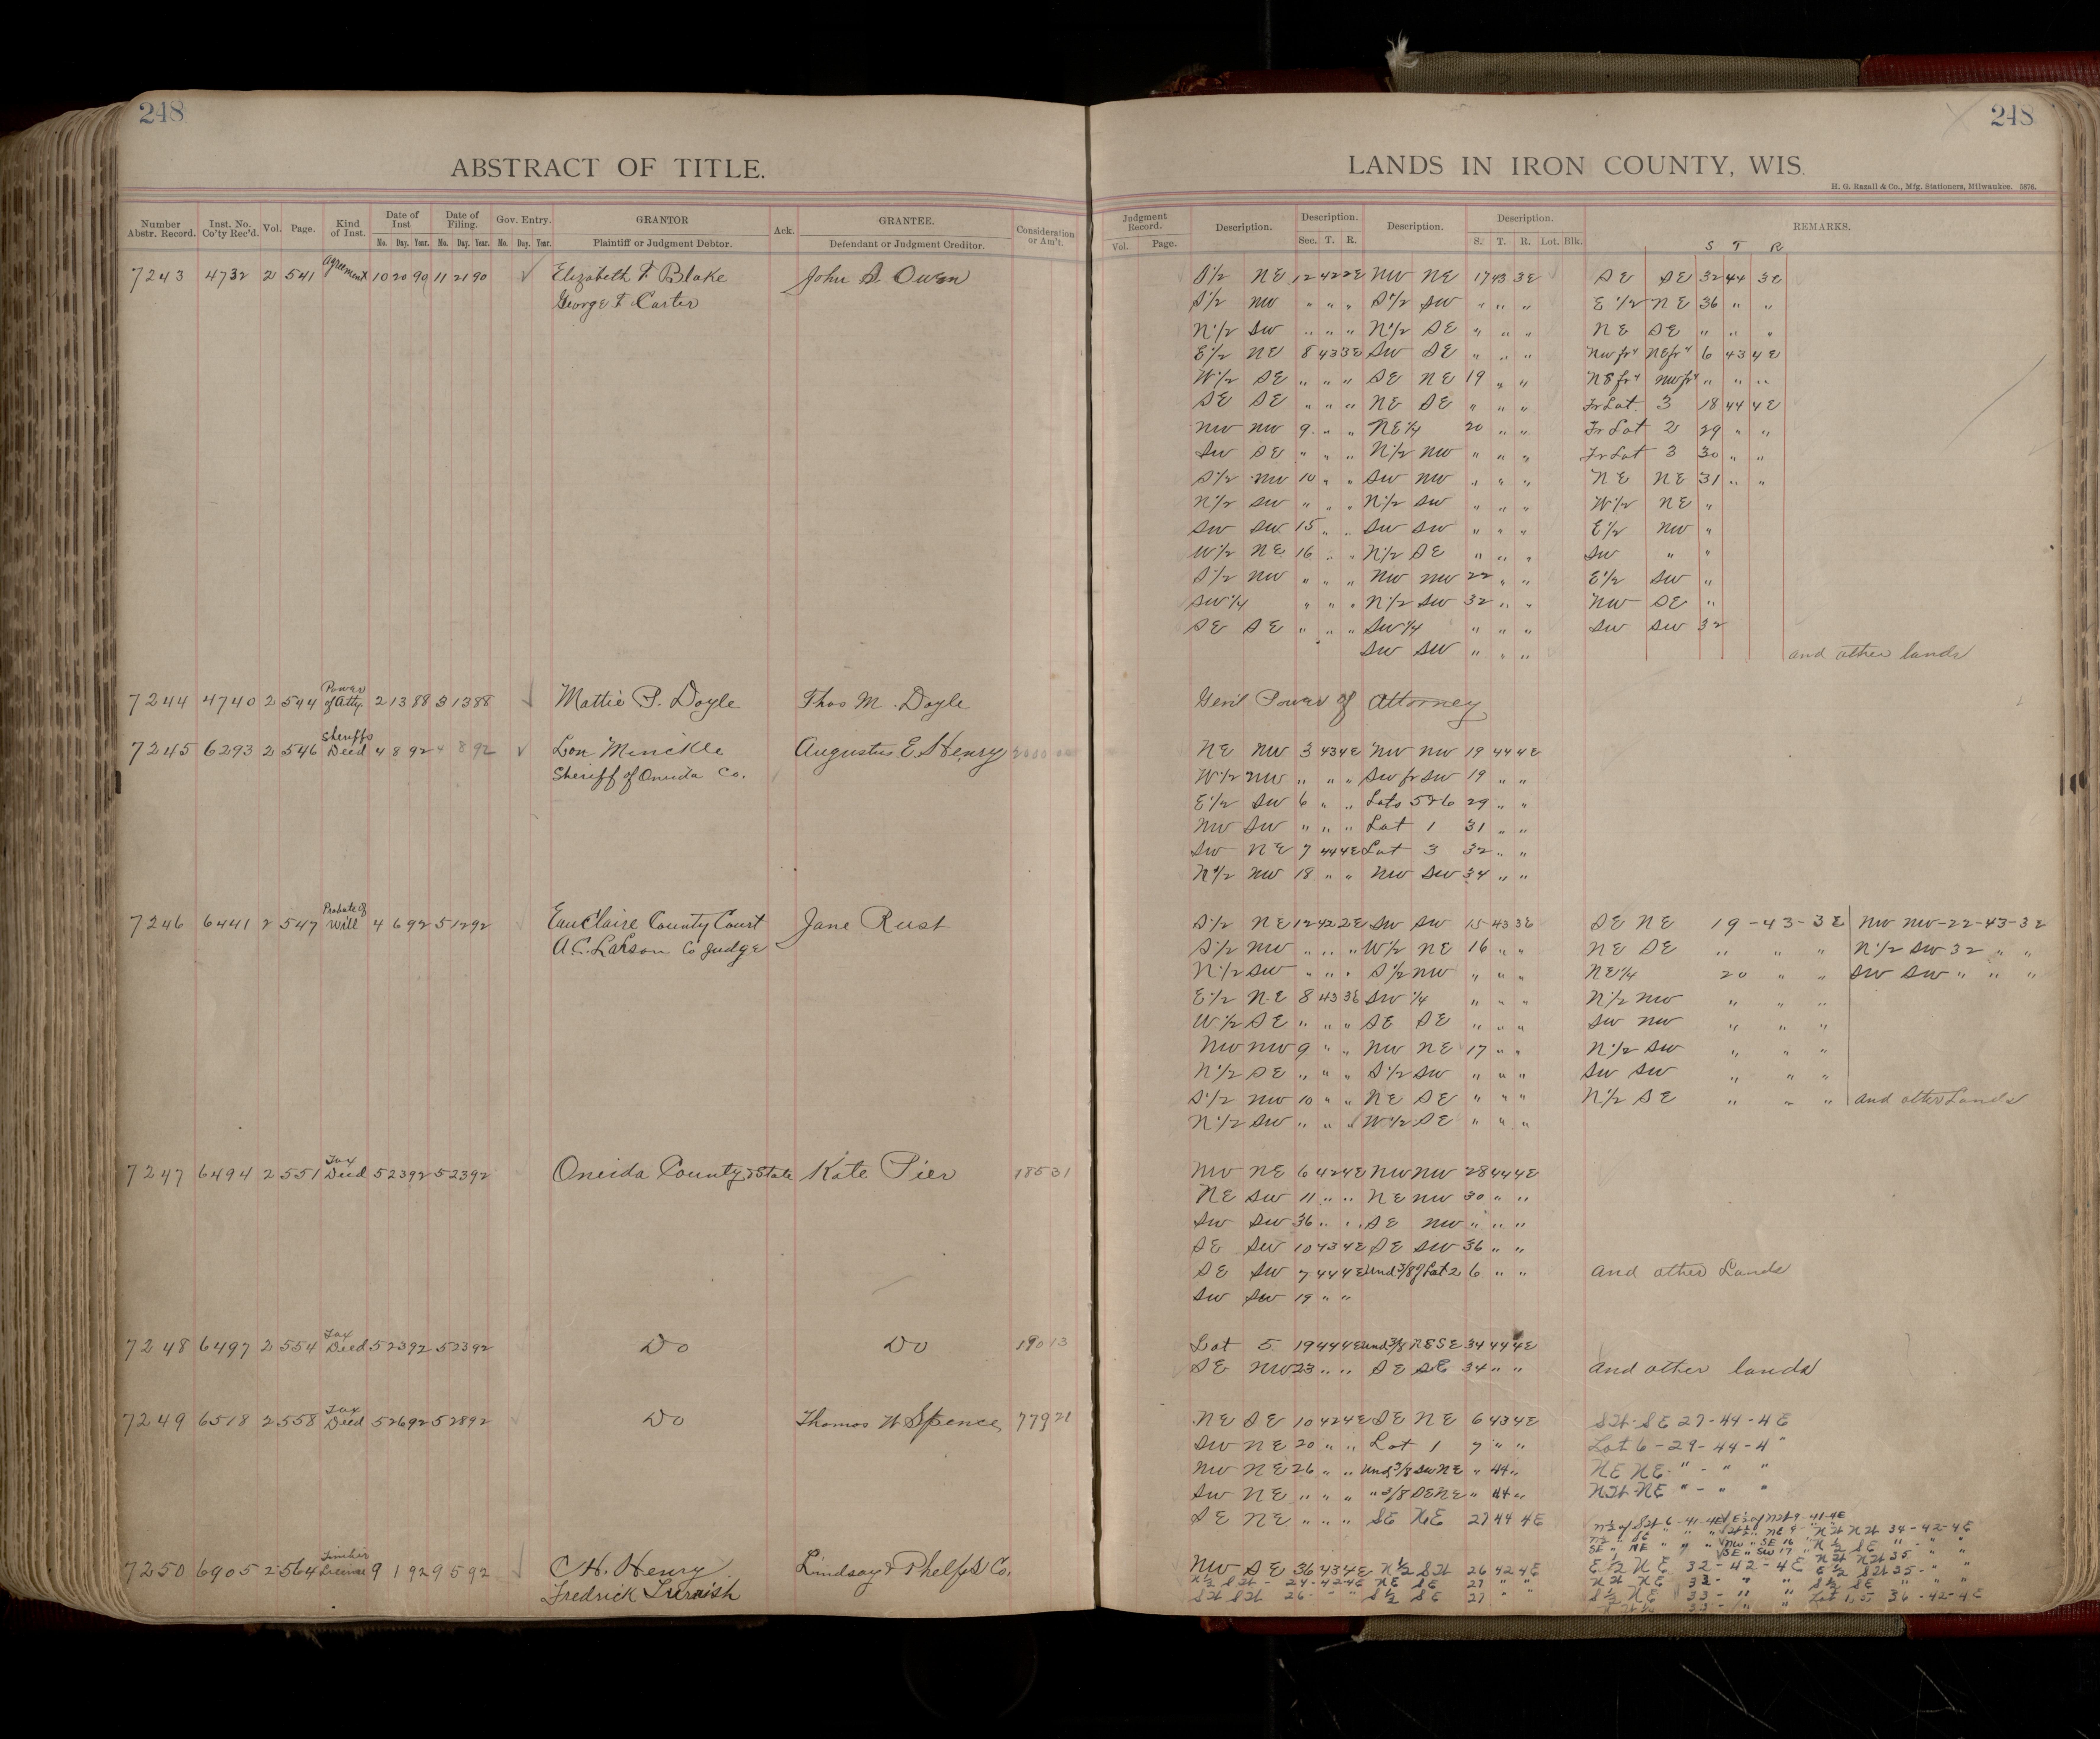 248
248
ABSTRACT OF TITLE.
LANDS IN IRON COUNTY, WIS.
H. G. Razall & Co., Mfg. Stationers, Milwaukee. 5876.
Number Abstr. Record. Inst. No. Co'ty Rec'd. Vol. Page. Kind of Inst. Date of Inst Mo. Day. Year. Date of Filing. Mo. Day. Year. Gov. Entry. Mo. Day. Year. GRANTOR Plaintiff or Judgment Debtor. Ack. GRANTEE. Defendant or Judgment Creditor. Consideration or Am't.
Judgment Record. Vol. Page. Description. Description. Sec. T. R. Description. Description. S. T. R. Lot. Blk. REMARKS.
S T R
7243 4732 2 541 Agreement 10 20 90 11 21 90 √ Elizabeth F. Blake John S. Owen S½ NE 12 42 2E NW NE 17 43 3E SE SE 32 44 3E
George F. Carter S½ NW " " " S½ SW " " " E½ NE 36 " "
N½ SW " " " N½ SE " " " NE SE " " "
E½ NE 8 43 3E SW SE " " " NW fr4 NE fr4 6 43 4E
W½ SE " " " SE NE 19 " " NE fr4 NW fr4 " " "
SE SE " " " NE SE " " " Fr Lot 3 18 44 4E
NW NW 9 " " NE¼ 20 " " Fr Lot 2 29 " "
SW SE " " " N½ NW " " " Fr Lot 3 30 " "
S½ NW 10 " " SW NW " " " NE NE 31 " "
N½ SW " " " N½ SW " " " W½ NE "
SW SW 15 " " SW SW " " " E½ NW "
W½ NE 16 " " N½ SE " " " SW " "
S½ NW " " " NW NW 22 " " E½ SW "
SW¼ " " " N½ SW 32 " " NW SE "
SE SE " " " SW¼ " " " SW SW 32
SW SW " " " and other lands
7244 4740 2 544 Power of Atty. 2 13 88 3 13 88 √ Mattie P. Doyle Thos M. Doyle Gen'l Power of Attorney
7245 6293 2 546 Sheriffs Deed 4 8 92 4 8 92 √ Lon Minckle Augustus E. S. Henry NE NW 3 43 4E NW NW 19 44 4E
Sheriff of Oneida Co. W½ NW " " " SW fr SW 19 " "
E½ SW 6 " " Lots 5&6 29 " "
NW SW " " " Lot 1 31 " "
SW NE 7 44 4E Lot 3 32 " "
N½ NW 18 " " NW SW 34 " "
7246 6441 2 547 Probate of Will 4 6 92 5 12 92 Eau Claire County Court Jane Rust S½ NE 12 42 2E SW SW 15 43 3E SE NE 19-43-3E NW NW-22-43-3E
A.C. Larson Co Judge S½ NW " " " W½ NE 16 " " NE SE " " " N½ SW 32 " "
N½ SW " " " S½ NW " " " NE¼ 20 " " SW SW " " "
E½ NE 8 43 3E SW¼ " " " N½ NW " " "
W½ SE " " " SE SE " " " SW NW " " "
NW NW 9 " " NW NE 17 " " N½ SW " " "
N½ SE " " " S½ SW " " " SW SW " " "
S½ NW 10 " " NE SE " " " N½ SE " " " and other Lands
N½ SW " " " W½ SE " " "
7247 6494 2 551 Tax Deed 5 23 92 5 23 92 Oneida County & State Kate Pier 185 31 NW NE 6 42 4E NW NW 28 44 4E
NE SW 11 " " NE NW 30 " "
SW SW 36 " " SE NW " " "
SE SW 10 43 4E SE SW 36 " "
SE SW 7 44 4E Und 3/8 of Lot 2 6 " " and other Lands
SW SW 19 " "
7248 6497 2 554 Tax Deed 5 23 92 5 23 92 Do Do 190 13 Lot 5 19 44 4E Und 3/8 NE SE 34 44 4E
SE NW 23 " " SE SE 34 " " and other lands
7249 6518 2 558 Tax Deed 5 26 92 5 28 92 Do Thomas W Spence 779 21 NE SE 10 42 4E SE NE 6 43 4E SW-SE 27-44-4E
SW NE 20 " " Lot 1 7 " " Lot 6-29-44-4"
NW NE 26 " " Und 3/8 SW NE " 44 " NE NE " - " "
SW NE " " " " 3/8 SE NE " 44 " NW-NE " - " "
SE NE " " " SE NE 27 44 4E
7250 6905 2 564 Timber License 9 1 92 9 5 92 √ C.H. Henry Lindsay & Phelps Co. NW SE 36 43 4E N½ SW 26 42 4E E½ NE 32-42-4E
Fredrick N½ SW - 24-42-4E NE SE 27 " "
SW SW 26 - " " S½ SE 27 " "